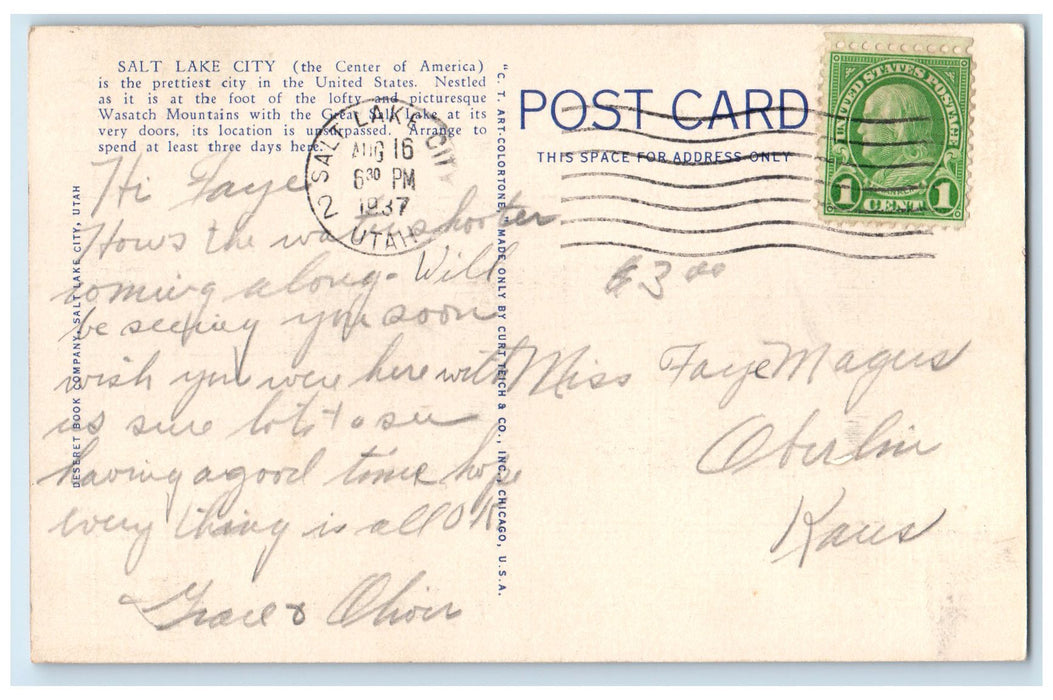 SALT LAKE CITY (the Center of America)
is the prettiest city in the United States. Nestled
as it is at the foot of the lofty and picturesque
Wasatch Mountains with the Great Salt Lake at its
very doors, its location is unsurpassed. Arrange to
spend at least three days here.
Hi Faye
Hows the water shooter
coming along - Will
be seeing you soon
wish you were here with
us sure lots to see
having a good time hope
every thing is all OK
Grace & Oliver
DESERET BOOK COMPANY, SALT LAKE CITY, UTAH
"C. T. ART-COLORTONE" MADE ONLY BY CURT TEICH & CO., INC., CHICAGO, U.S.A.
SALT LAKE CITY
AUG 16
6 30 PM
1937
2 UTAH
POST CARD
THIS SPACE FOR ADDRESS ONLY
UNITED STATES POSTAGE
1 CENT 1
$3 00
Miss Faye Magers
Oberlin
Kans